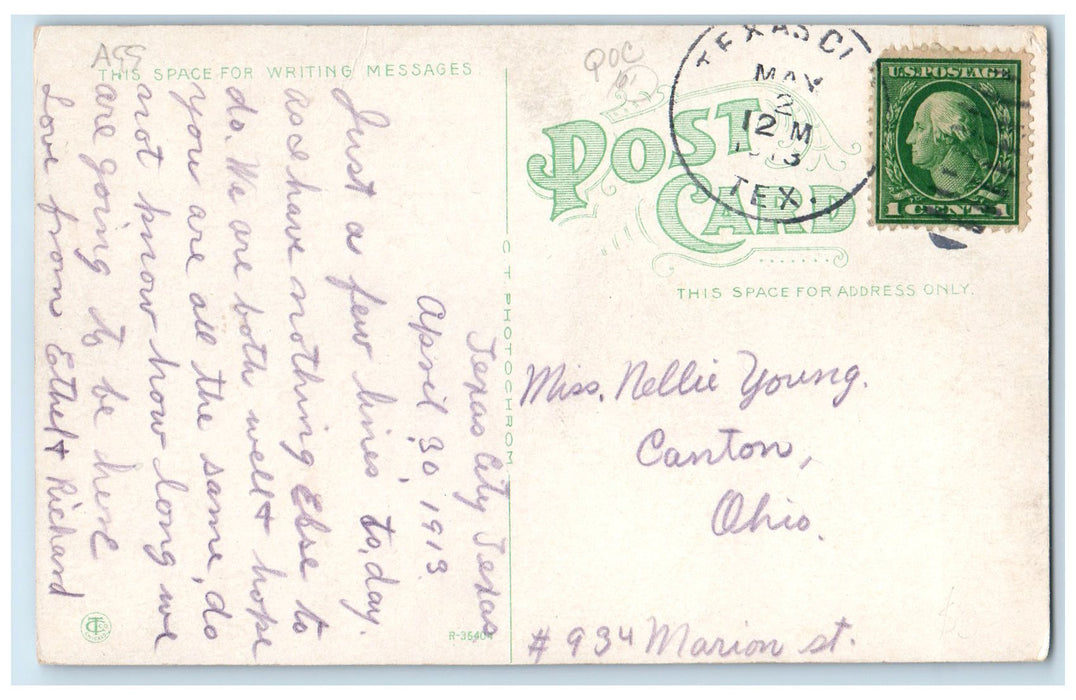 ASS
THIS SPACE FOR WRITING MESSAGES.
Texas City Texas
April 30, 1913.
Just as few lines to, day.
as I have nothing Else to
do. We are both well & hope
you are all the same, do
not know how long we
are going to be here
Love from Ethel & Richard
C T PHOTOCHROM
R-35404
QOC
POST CARD
TEXAS CI
MAY
2
12 M
1913
TEX.
U.S. POSTAGE
1 CENT 1
THIS SPACE FOR ADDRESS ONLY.
Miss. Nellie Young.
Canton,
Ohio.
# 934 Marion st.